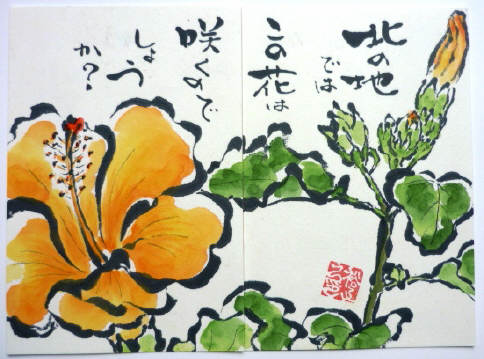 北の地
では
この花は
咲くので
しょう
か？